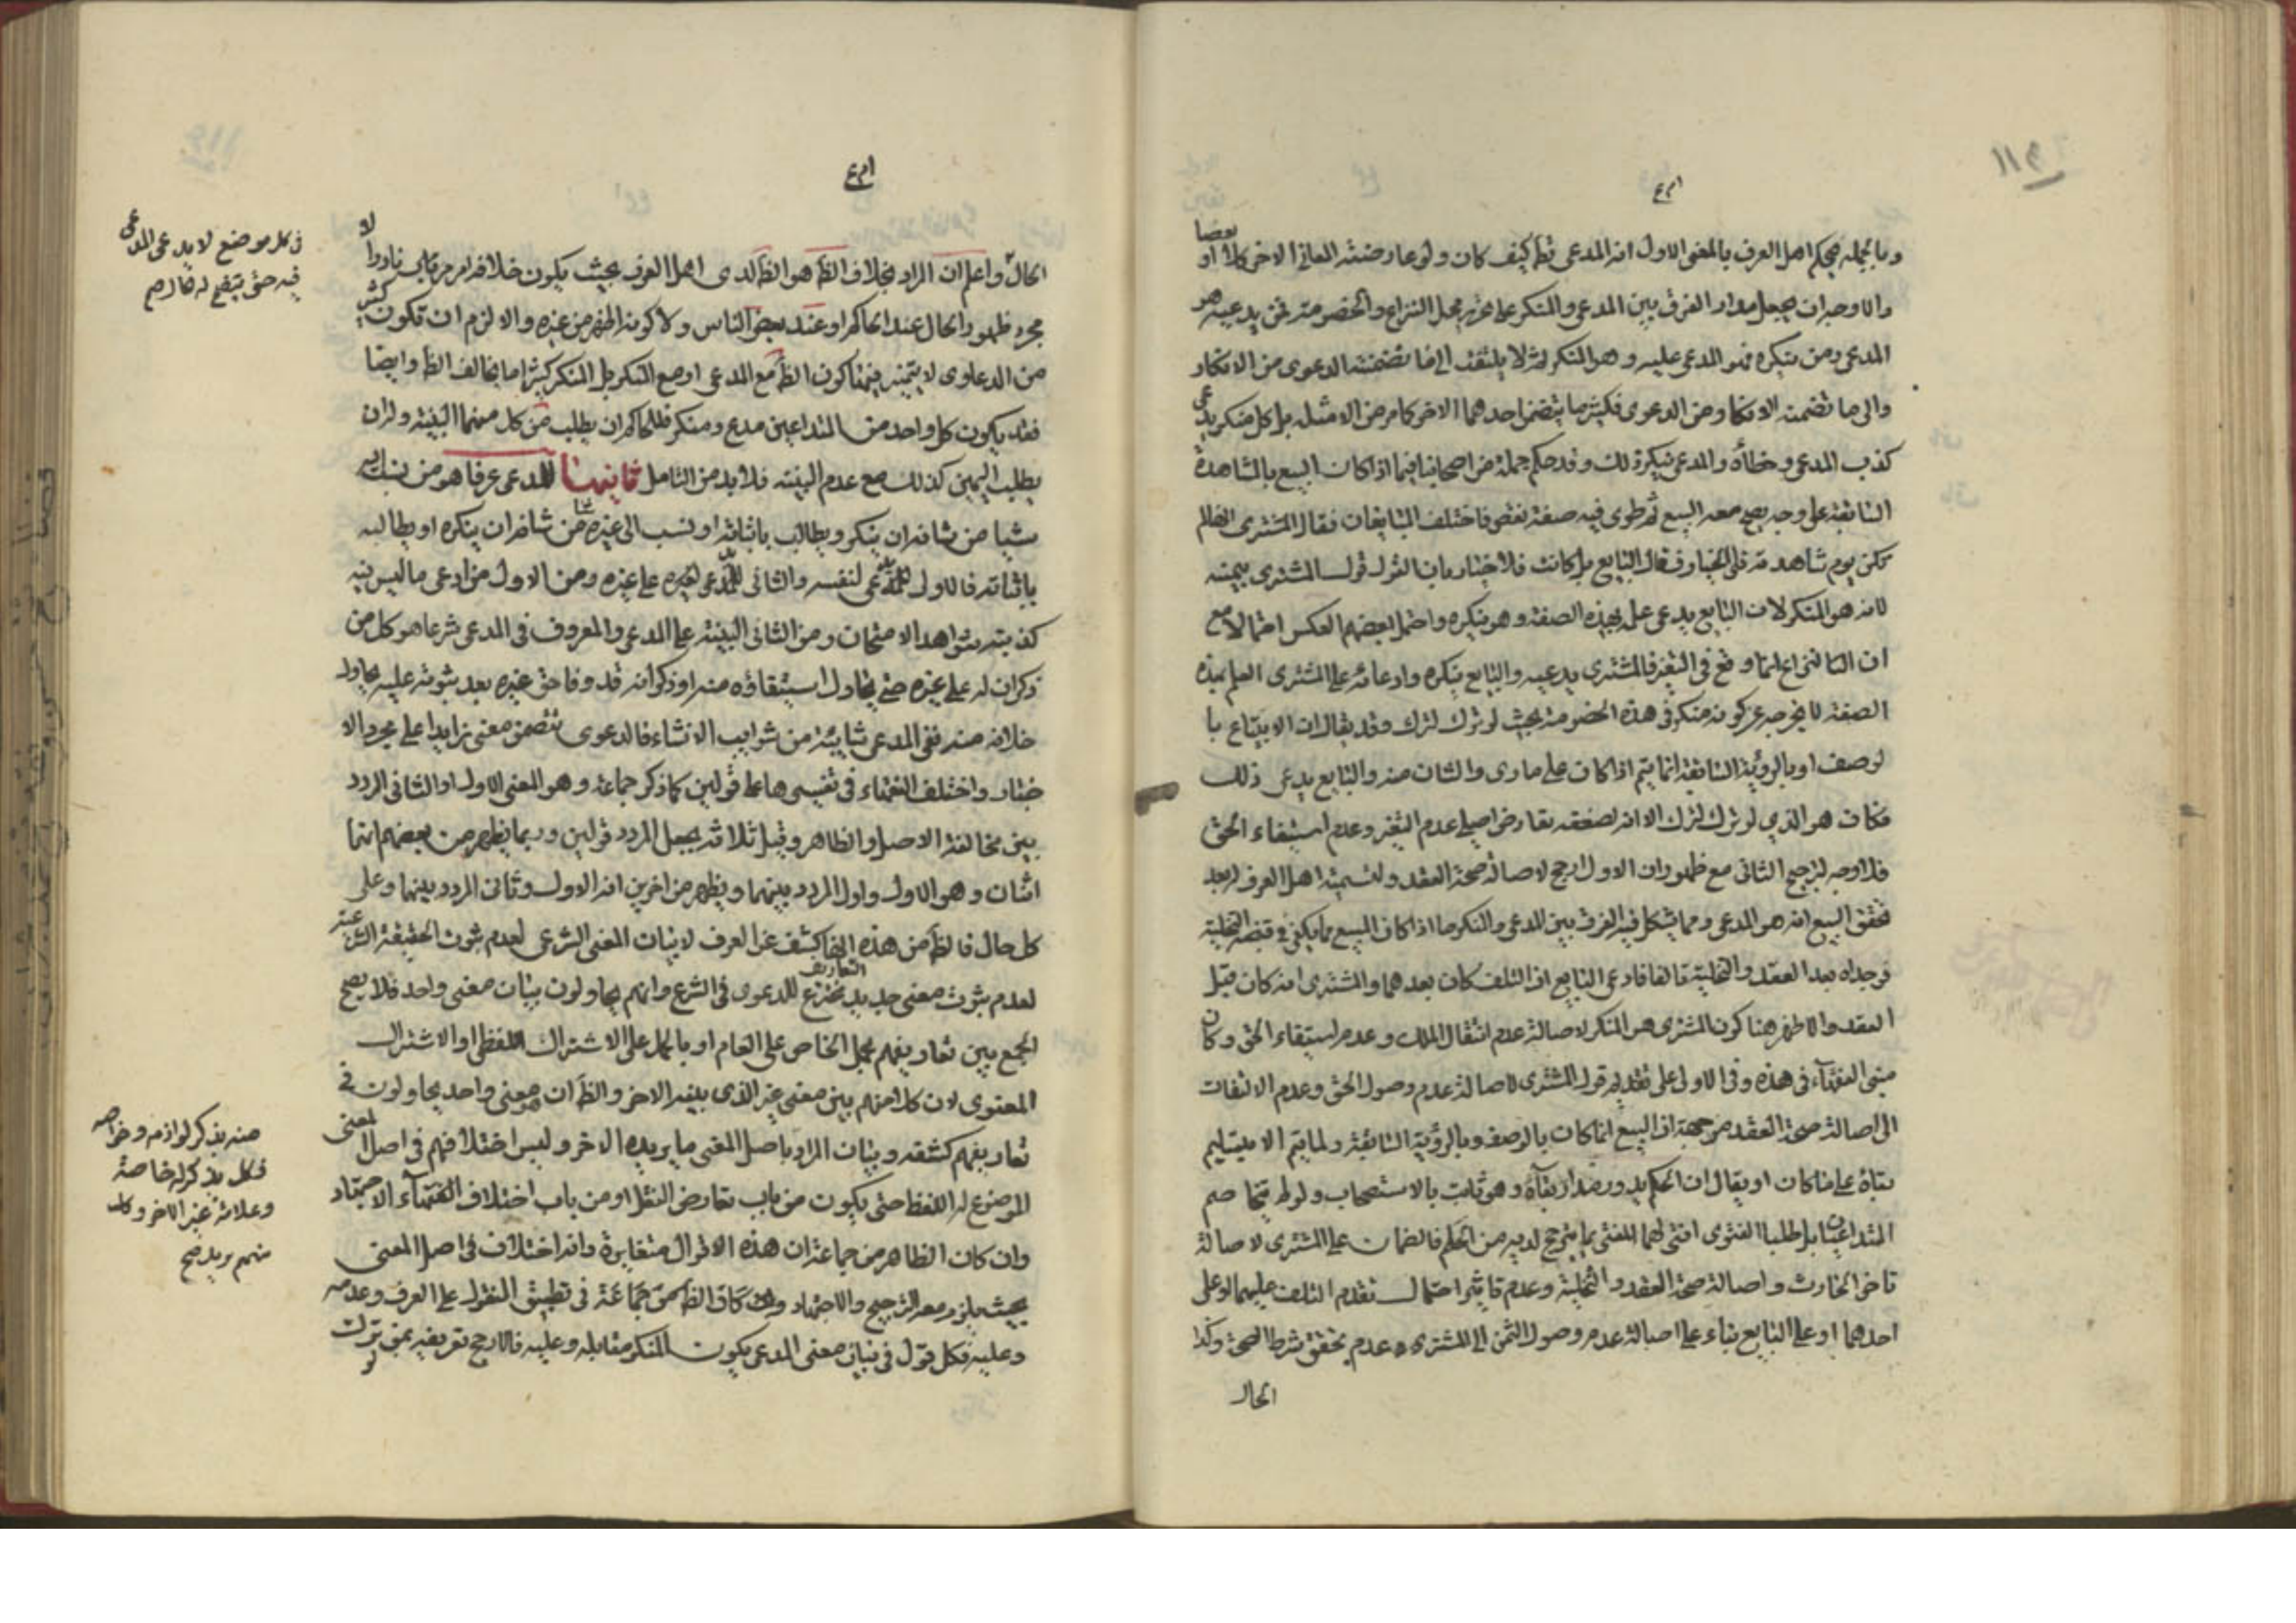 وبالجمله فيحكم اهل العرف بالمعنى الاول انه المدعى قطعا كيف كان ولو عارضته المعانى الاخر كلا او بعضا
والاوجه ان يجعل مدار الفرق بين المدعى والمنكر على محل النزاع والخصومة فمن يدعيه هو
المدعى ومن ينكره فهو المدعى عليه وهو المنكر ثم لا يلتفت الى ما تضمنته الدعوى من الانكار
والى ما تضمنه الانكار من الدعوى فكثيرا ما يتضمن احدهما الاخر كما مر من الامثله بل كل منكر يدعى
كذب المدعى وخطأه والمدعى ينكر ذلك وقد حكم جملة من اصحابنا فيما اذا كان البيع بالمشاهدة
السابقة على وجه يصح معه البيع ثم طوى فيه صفة نقص فاختلف المتبايعان فقال المشترى انها لم
تكن يوم شاهدته فلى الخيار وقال البايع بل كانت فلا خيار بان القول قول المشترى بيمينه
لانه هو المنكر لان البايع يدعى علمه بهذه الصفة وهو ينكره واحتمل بعضهم العكس احتمالا مع
ان التنازع انما وقع فى التغير فالمشترى يدعيه والبايع ينكره وادعائه على المشترى العلم بهذه
الصفة لا يخرجه عن كونه منكرا فى هذه الخصومة بحيث لو ترك لترك وقد يقال ان الابتياع با
لوصف او بالرؤية السابقة انما يتم اذا كان على ما راى والشان منه والبايع يدعى ذلك
فكان هو الذى لو ترك لترك الا انه لصفقه تعارض اصلى عدم التغير وعدم استيفاء الحق
فلا وجه لترجيح الثانى مع ظهور ان الاول ارجح لاصالة صحة العقد ولتسمية اهل العرف له بعد
تحقق البيع انه هو المدعى ومما يشكل فيه الفرق بين المدعى والمنكر ما اذا كان المبيع مما يكفى فى قبضه التخلية
فوجداه بعد العقد والتخلية تالفا فادعى البايع ان التلف كان بعدهما والمشترى انه كان قبل
العقد والاظهر هنا كون المشترى هو المنكر لاصالة عدم انتقال الملك وعدم استيفاء الحق وكان
مبنى الفقهآء فى هذه وفى الاولى على تقديم قول المشترى لاصالة عدم وصول الحق وعدم الالتفات
الى اصالة صحة العقد من جهة ان البيع انما كان بالوصف وبالرؤية السابقة ولما يتم الا بتسليم
بقاؤه على ما كان او يقال ان الحكم يدور مدار بقآؤه وهو ثابت بالاستصحاب ولو لم يتخاصم
المتداعيان بل طلبا الفتوى افتى لهما المفتى بما يترجح لديه من الحكم فالضمان على المشترى لاصالة
تاخر الحادث واصالة صحة العقد والتخلية وعدم تاثير احتمال تقدم التلف عليهما او على
احدهما او على البايع بناء على اصالة عدم وصول الثمن الى المشترى وعدم تحقق شرط الصحة وكذا
الحال
الحال واعلم ان المراد بخلاف الظ هو الظ لدى اهل العرف بحيث يكون خلافه امر مريب نادرا لا
مجرد ظهور الحال عند الحاكم او عند بعض الناس ولا كونه اظهر من غيره والا لزم ان تكون كثير
من الدعاوى لا يتميز فيها كون الظ مع المدعى او مع المنكر بل المنكر كثيرا ما يخالف الظ وايضا
فقد يكون كل واحد من المتداعيين مدع ومنكر فللحاكم ان يطلب من كل منهما البينة وله ان
يطلب اليمين كذلك مع عدم البينه فلا بد من التامل ثانيها المدعى عرفا هو من نسب اليه
شيا من شانه ان ينكر ويطالب باثباته او نسب الى غيره شيا من شانه ان ينكره او يطالبه
باثباته فالاول المدعى لنفسه والثانى المدعى لغيره على غيره ومن الاول من ادعى ما ليس فيه
كذبته شواهد الامتحان ومن الثانى البينة على المدعى والمعروف فى المدعى شرعا هو كل من
ذكر ان له على غيره حق يحاول استيفاؤه منه او ذكر انه قد وفا حق غيره بعد ثبوته عليه يحاول
خلاصه منه ففى المدعى شايبة من شوايب الانشاء فالدعوى تتضمن معنى زايدا على مجرد الا
خبار واختلف الفقهاء فى تفسيرها على قولين كما ذكر جماعة وهو المعنى الاول او الثانى المردد
بين مخالفة الاصل والظاهر وقيل ثلاثة بجعل المردد قولين وربما يظهر من بعضهم انها
اثنان وهو الاول واول المردد بينهما ويظهر من اخرين انه الاول وثانى المردد بينهما وعلى
كل حال فالظ من هذه انها كشف عن العرف لا بيان المعنى الشرعى لعدم ثبوت الحقيقة الشرعية
لعدم ثبوت معنى جديد مخترع للدعوى فى الشرع وانهم يحاولون ببيان معنى واحد فلا يصح
الجمع بين تعاريفهم بحمل الخاص على العام او بالحمل على الاشتراك اللفظى او الاشتراك
المعنوى لان كلا منهم يبين معنى غير الذى يبينه الاخر والظ ان معنى واحد يحاولون فى
تعاريفهم كشفه وبيان المراد باصل المعنى ما يريده الاخر وليس اختلافهم فى اصل المعنى
الموضوع له اللفظ حتى يكون من باب تعارض النقل او من باب اختلاف الفقهآء الاجتهاد
وان كان الظاهر من جماعة ان هذه الاقوال متغايرة وانه اختلاف فى اصل المعنى
بحيث يلزم معه الترجيح والاجتهاد وان كان الظ من جماعة فى تطبيق النقول على العرف وعدمه
وعليه فكل قول فى بيان معنى المدعى يكون المنكر مقابله وعليه فالارجح تعريفه بمن ترك
لو
فى كل موضع لا يدعى المدعى
فيه حتى يتضح له
منه يذكر لوازمه وخواصه
فكل يذكر له خاصة
وعلامة غير الاخر وكل
منهم يريد صح